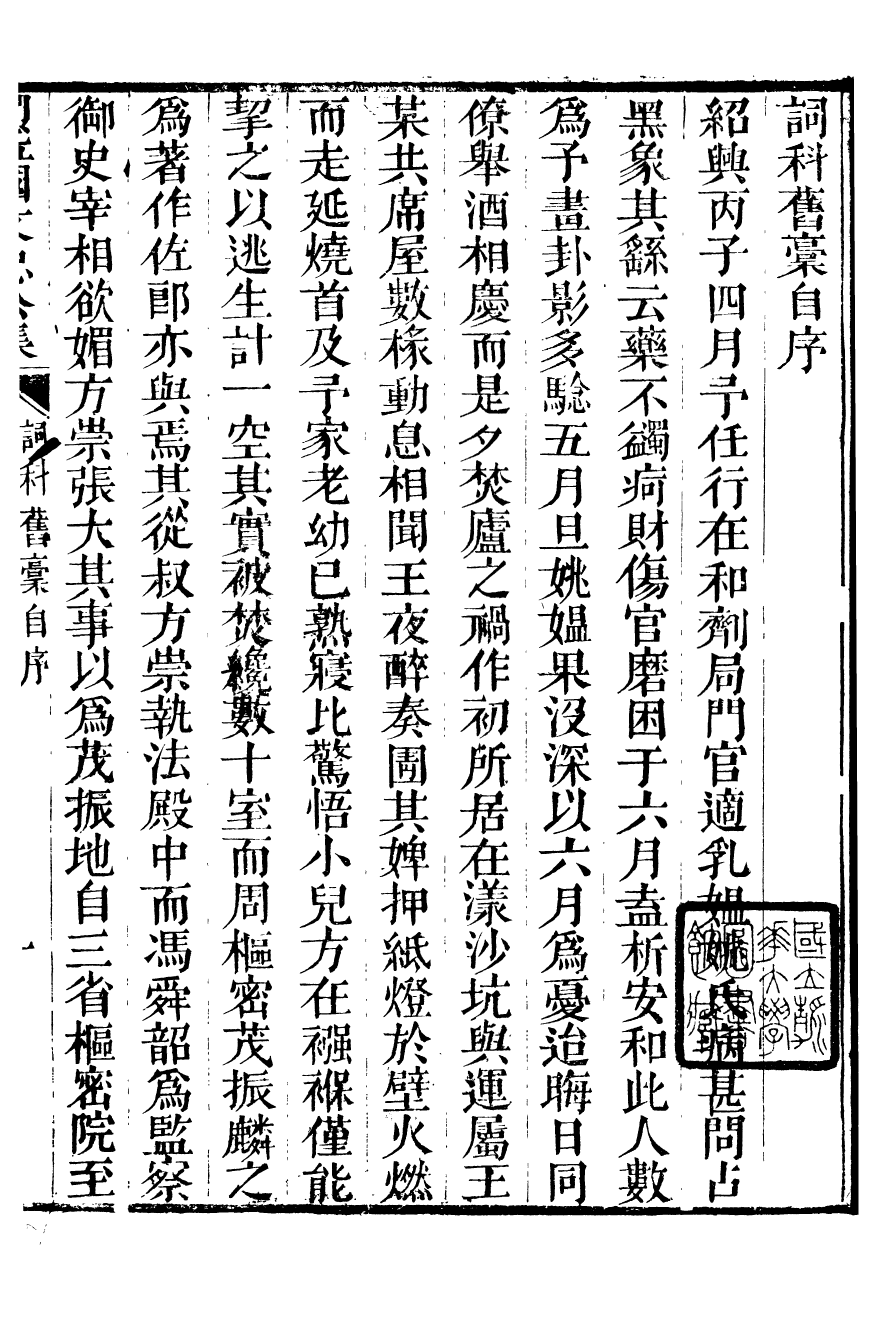 詞科舊稾自序
紹興丙子四月予任行在和劑局門官適乳媼姚氏病甚問占
黑象其繇云藥不蠲疴財傷官磨困于六月盍析安和此人數
爲予畫卦影多騐五月旦姚媼果沒深以六月爲憂迨晦日同
僚舉酒相慶而是夕焚廬之禍作初所居在漾沙坑與運屬王
某共席屋數椽動息相聞王夜醉奏圊其婢押紙燈於壁火燃
而走延燒首及予家老幼已熟寢比驚悟小兒方在襁褓僅能
挈之以逃生計一空其實被焚纔數十室而周樞密茂振麟之
爲著作佐郎亦與焉其從叔方崇執法殿中而馮舜韶爲監察
御史宰相欲媚方崇張大其事以爲茂振地自三省樞密院至
詞科舊稾自序